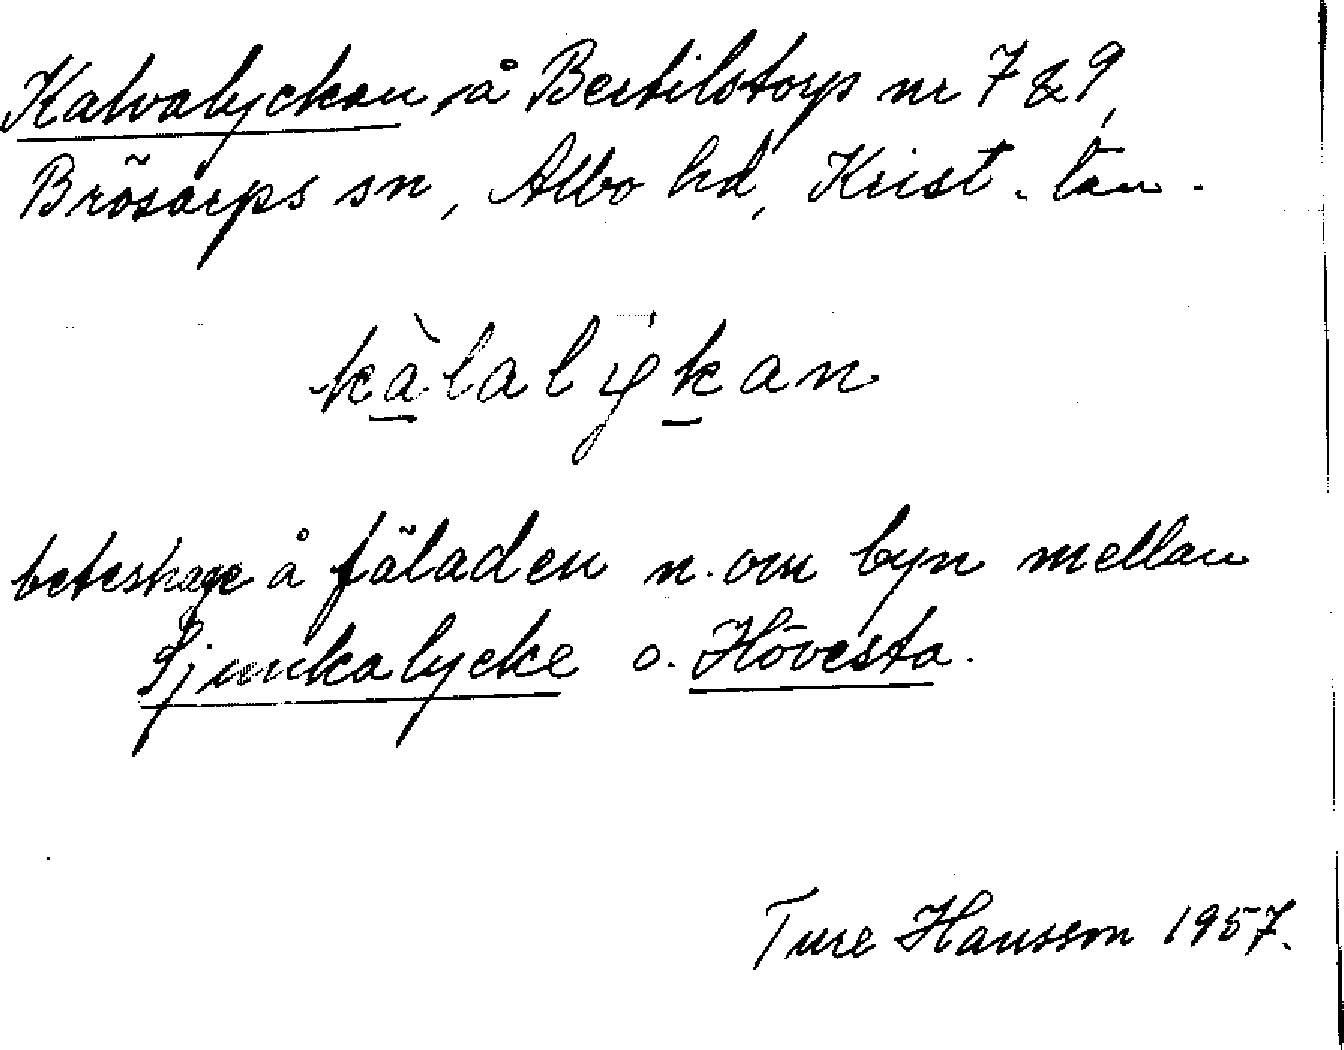 Kalvalyckan, å Bertilstorps nr 7 & 9,
Brösarps sn, Albo hd, Krist. län.
kàlalýkan
beteshage å fäladen n. om byn mellan
Sjunkalycke o. Hövesta.
Ture Hansson 1957.